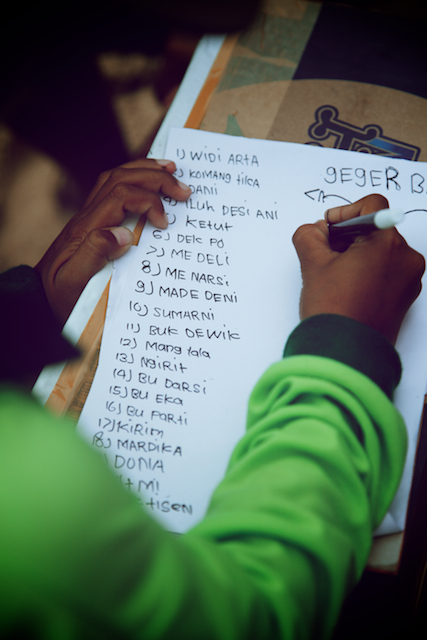 1) WIDI ARTA
KOMANG tilca
DANI
ILUH DESI ANI
Ketut
6) DEIC PO
7) ME DELI
8) ME NARSi
9) MADE DENI
10) SUMARNI
11) BUK DEWIK
12) Mang tala
13) NgiRit
14) BU DARSi
15) BU EKA
16) BU PARTi
17) KIRIM
18) MARDIKA
DONA
gEgER B